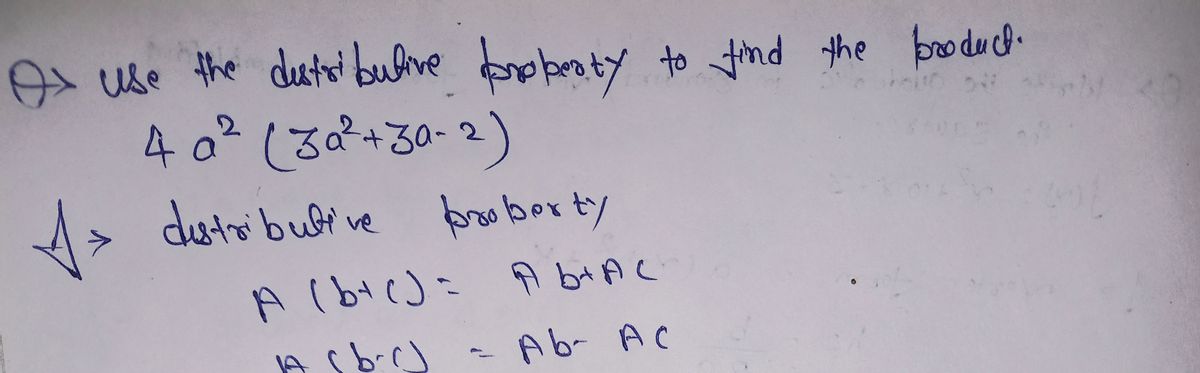 Q> use the distributive property to find the product.
4a² (3a²+3a-2)
A> distributive property
A (b+c) = Ab+AC
A (b-c) = Ab- AC